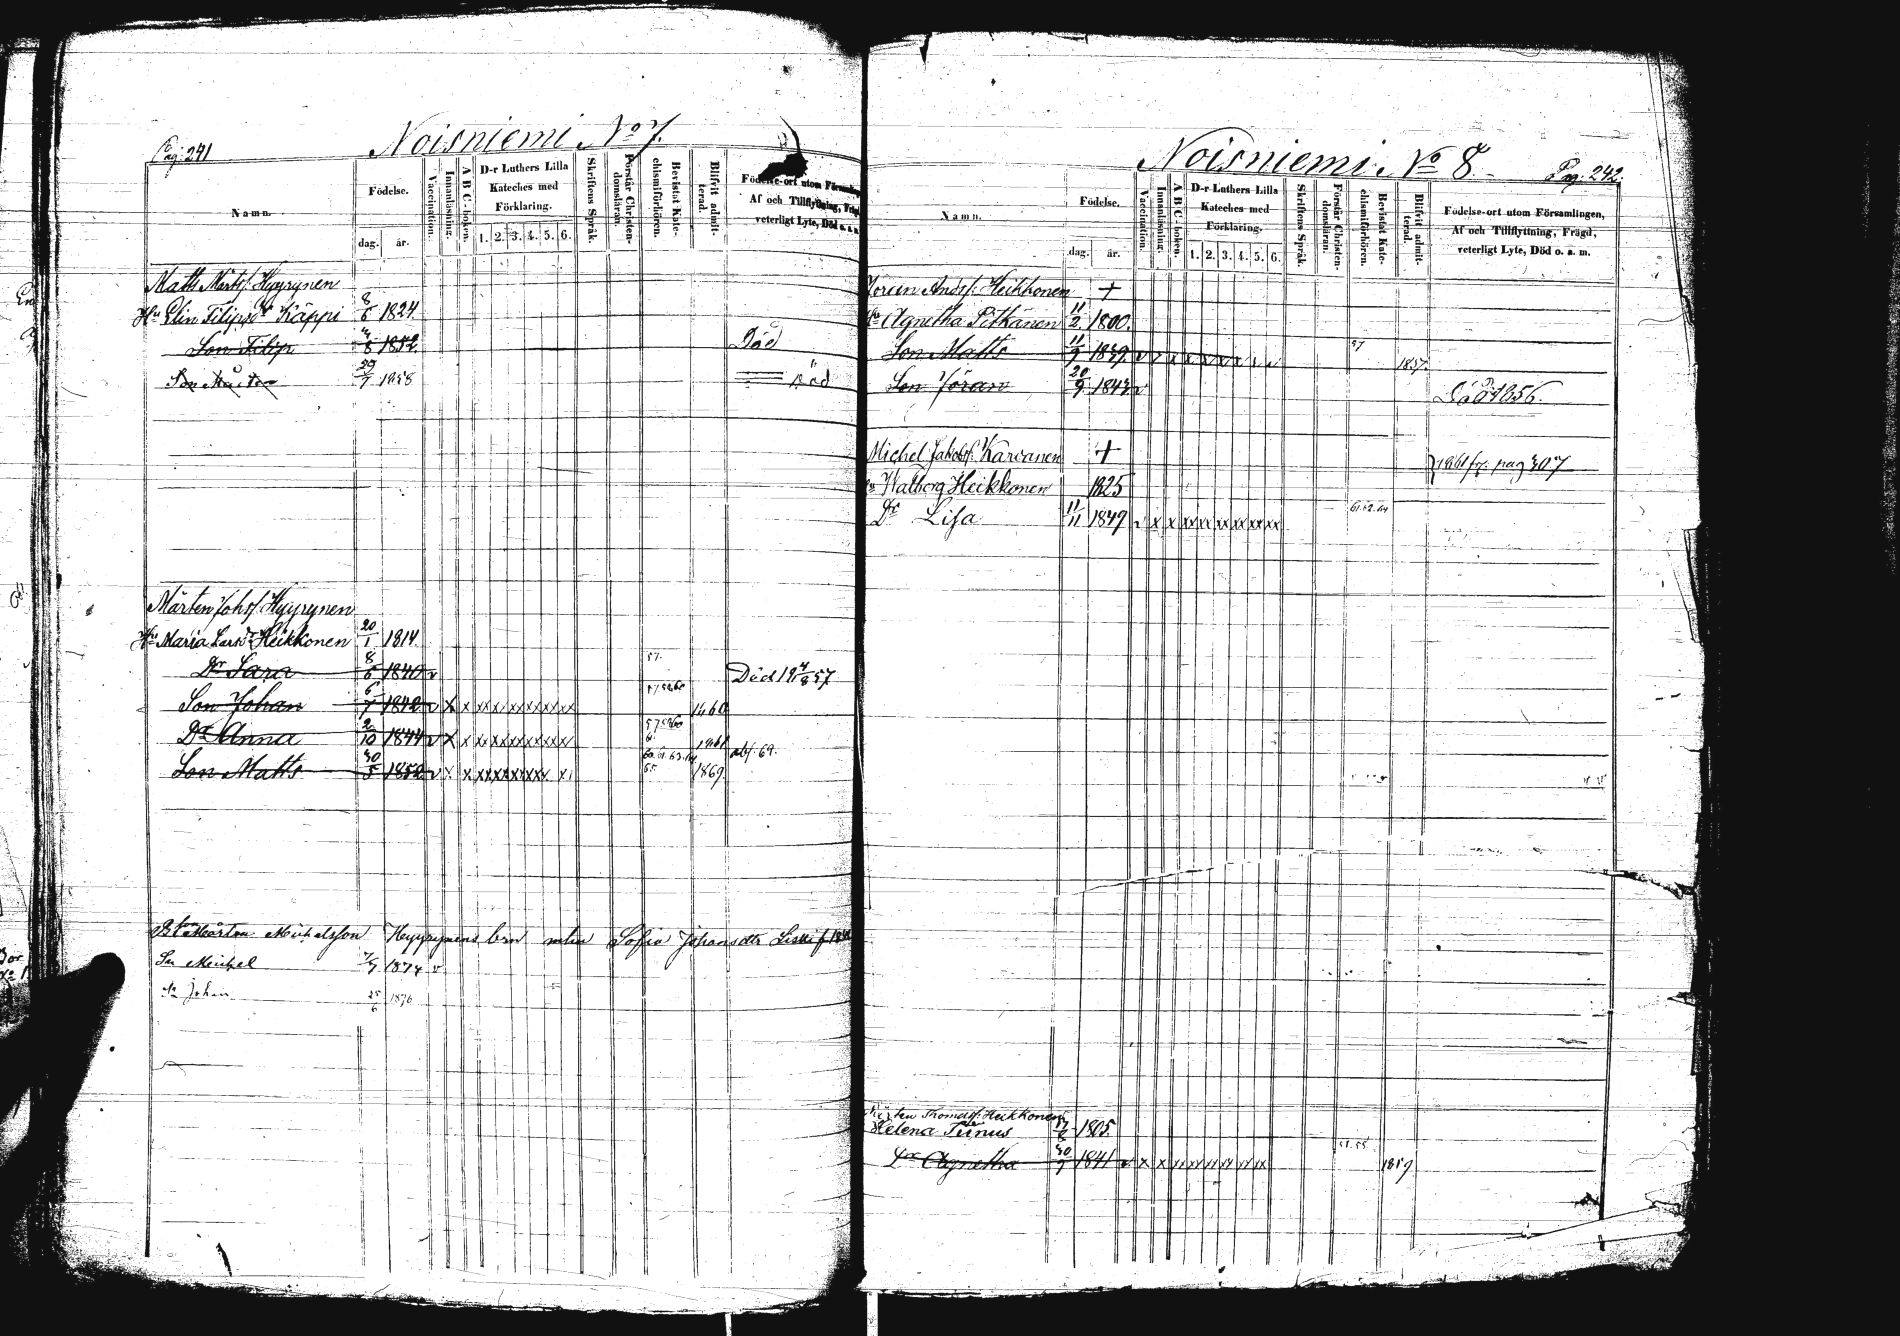 Pag: 241
Noisniemi No 7.
Namn.
Födelse.
dag. år.
Vaccination.
Innanläsning.
A B C-boken.
D-r Luthers Lilla
Kateches med
Förklaring.
1. 2. 3. 4. 5. 6.
Skriftens Språk.
Förstår Christendomsläran.
Bevistat Katechismiförhören.
Blifvit admitterad.
Födelse-ort utom Försam
Af och Tillflyttning, Fräg
veterligt Lyte, Död o. a. m.
Matts Mårtss. Hyyrynen
Hu Elin Filipsdr Käppi 8/6 1824
Son Filip 1852 Död
Son Mårten 29/7 1858 Död
Mårten Johss. Hyyrynen
Hu Maria Larsdr Heikkonen 20/1 1814.
Dr Sara 8/6 1840 v 57. Död 19 4/8 57
Son Johan 6/7 1842 v x x xx xx xx xx xx xx 1860
Dr Anna 2/10 1844 v x x xx xx xx xx xx xx 1861
Son Matts 30/5 1852 v x x xx xx xx xx x 65 1869 abf. 69.
Mårten Michelsson Hyyrynens brn Sofia Johansdtr
Sn Michel 1874 v
Sn Johan 25/6 1876
Noisniemi No 8.
Pag: 242.
Namn.
Födelse.
dag. år.
Vaccination.
Innanläsning.
A B C-boken.
D-r Luthers Lilla
Kateches med
Förklaring.
1. 2. 3. 4. 5. 6.
Skriftens Språk.
Förstår Christendomsläran.
Bevistat Katechismiförhören.
Blifvit admitterad.
Födelse-ort utom Församlingen,
Af och Tillflyttning, Frägd,
veterligt Lyte, Död o. a. m.
Jöran Andss. Heikkonen +
Agnetha Pitkänen 11/2 1800.
Son Matts 11/9 1839 v 57 1857
Son Jöran 20/9 1843 v Död 1856.
Michel Jakobss. Karvanen + 1861 fr. pag 307
Walborg Heikkonen 1825
Dr Lisa 11/11 1849 v x x xx xx xx xx xx xx 61.62.64
Mårten Thomass. Heikkonen
Helena Tiinus 1805.
Dr Agnetha 30/9 1841 v x x xx xx xx xx xx xx 1859